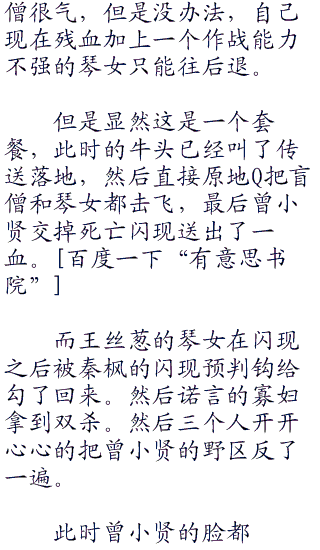 僧很气，但是没办法，自己
现在残血加上一个作战能力
不强的琴女只能往后退。
但是显然这是一个套
餐，此时的牛头已经叫了传
送落地，然后直接原地Q把盲
僧和琴女都击飞，最后曾小
贤交掉死亡闪现送出了一
血。[百度一下“有意思书
院”]
而王丝葱的琴女在闪现
之后被秦枫的闪现预判钩给
勾了回来。然后诺言的寡妇
拿到双杀。然后三个人开开
心心的把曾小贤的野区反了
一遍。
此时曾小贤的脸都